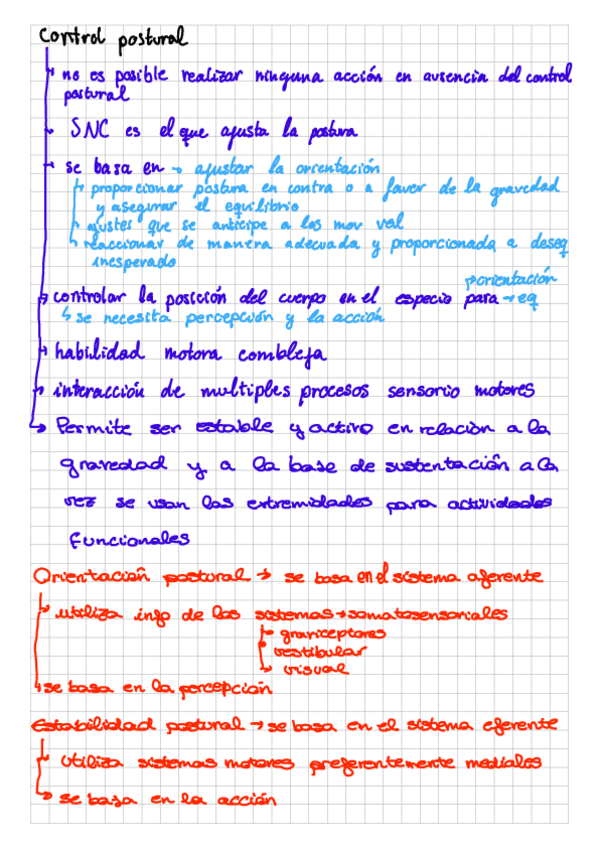 Control postural
no es posible realizar ninguna acción en ausencia del control
postural
SNC es el que ajusta la postura
se basa en → ajustar la orientación
proporcionar postura en contra o a favor de la gravedad
y asegurar el equilibrio
ajustes que se anticipe a los mov vol
reaccionar de manera adecuada y proporcionada a deseq
inesperado
→ orientación
controlar la posición del cuerpo en el espacio para → eq
↳ se necesita percepción y la acción
habilidad motora combleja
interacción de multiples procesos sensorio motores
Permite ser estable y activo en relación a la
gravedad y a la base de sustentación a la
vez se usan las extremidades para actividades
funcionales
Orientación postural → se basa en el sistema aferente
utiliza info de los sistemas → somatosensoriales
graviceptores
vestibular
visual
se basa en la percepción
Estabilidad postural → se basa en el sistema eferente
utiliza sistemas motores preferentemente mediales
se basa en la acción